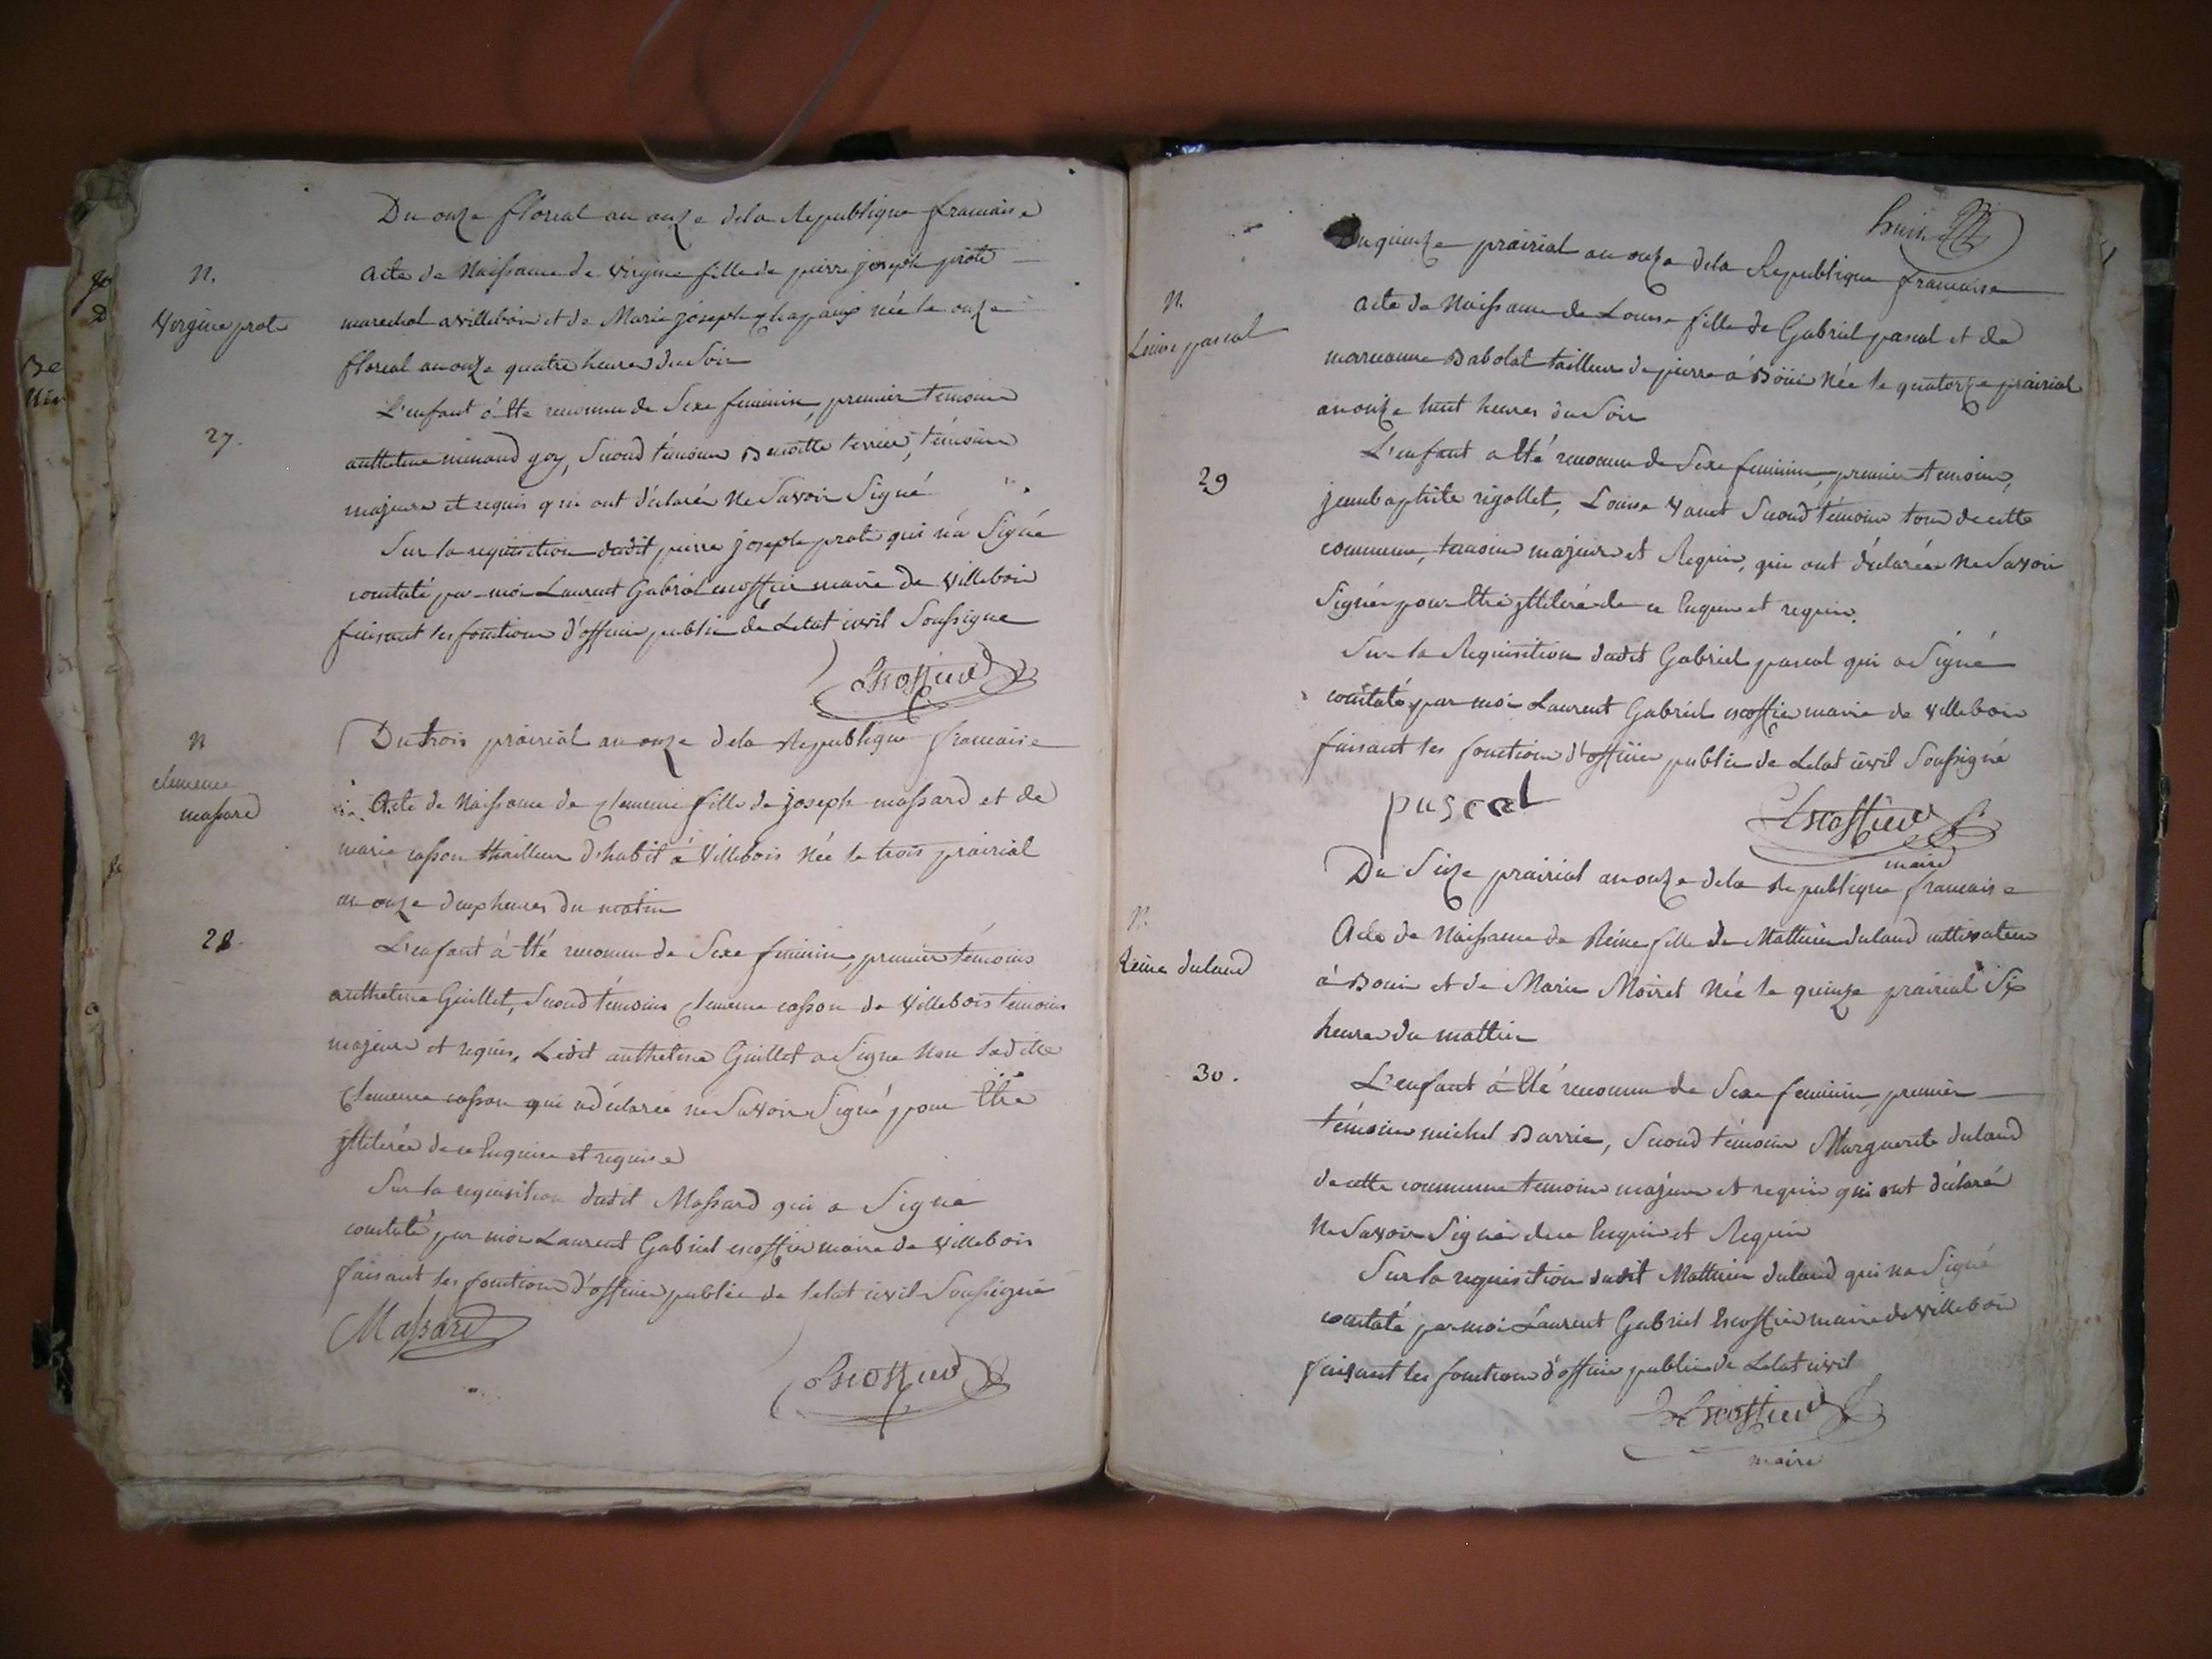 Du onze floreal an onze dela Republique francaise
N.
Virgine prote
acte de Naissance de Virgine fille de pierre joseph prote
marechal a villebois et de Marie joseph chapaux née le onze
floreal an onze quatre heures du Soir
27.
L'enfant à été reconnu de Sexe feminin, premier temoin
anthelme minand goy, Second témoin Benoitte terrier, témoins
majeurs et requis qui ont déclarés Ne Savoir Signé
Sur la requisition dudit pierre joseph prote qui n'a Signé
constaté par moi Laurent Gabriel escoffier maire de Villebois
faisant les fonctions d'officier public de Letat civil Soussigne
Escoffier
N
clemence
massard
Du trois prairial an onze dela Republique francaise
Acte de Naissance de Clemence fille de joseph massard et de
marie casson thailleur d'habit à Villebois Née le trois prairial
an onze deux heures du matin
28.
L'enfant à été reconnu de Sexe feminin, premier témoins
anthelme Guillet, Second témoins Clemence casson de Villebois temoins
majeurs et requis, Ledit anthelme Guillet a Signe Non Laditte
Clemence casson qui a déclarée ne Savoir Signé pour être
jlliterée de ce Enquise et requise
Sur la requisition dudit Massard qui a Signé
constaté par moi Laurent Gabriel escoffier maire de Villebois
faisant les fonctions d'officier public de letat civil Soussigné
Massard
Escoffier
huit
Du quinze prairial an onze dela Republique francaise
N.
Louise pascal
acte de Naissance de Louise fille de Gabriel pascal et de
marieanne Babolat tailleur de pierre à Böüi Née le quatorze prairial
an onze huit heures du Soir
29
L'enfant a été reconnu de Sexe feminin, premier temoin,
jeanbaptiste rigollet, Louise Vanet Second témoin tous de cette
commune, temoins majeurs et Requis, qui ont déclarés Ne Savoir
Signér pour être jlliteré de ce Enquis et requis.
Sur la Requisition dudit Gabriel pascal qui a Signé
constaté par moi Laurent Gabriel escoffier maire de Villebois
faisant les fonctions d'officier public de Letat civil Soussigné
pascal
Escoffier
maire
Du Seize prairial an onze dela Republique francaise
N.
Reine duland
Acte de Naissance de Reine fille de Mathieu duland cultivateur
à Bouis et de Marie Moiret Née le quinze prairial Six
heures du mattin
30.
L'enfant à Eté reconnu de Sexe feminin, premier
témoin michel Barrie, Second témoin Marguerite duland
de cette commune temoins majeurs et requis qui ont déclaré
Ne Savoir Signér de ce Enquis et Requis
Sur la requisition dudit Mathieu duland qui na Signé
constaté par moi Laurent Gabriel Escoffier maire de Villebois
faisant les fonctions d'officier public de Letat civil
Escoffier
maire